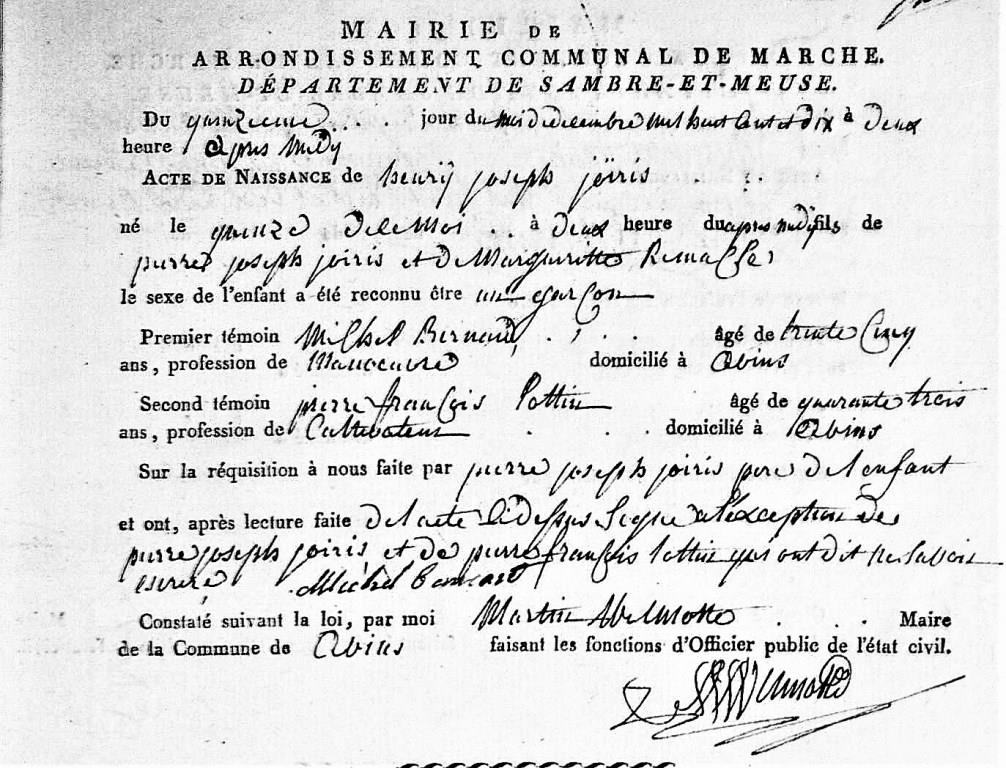 MAIRIE DE
ARRONDISSEMENT COMMUNAL DE MARCHE.
DÉPARTEMENT DE SAMBRE-ET-MEUSE.
Du quinzieme . . . jour du mois de decembre mil huit cent et dix à deux
heure apres midy
ACTE DE NAISSANCE de henrÿ joseph joiris . .
né le quinze de le mois . . à deux heure du apres midy fils de
pierre joseph joiris et de Margueritte Remacle
le sexe de l'enfant a été reconnu être un garçon
Premier témoin Michel . . . âgé de trente Cinq
ans, profession de Manoeuvre domicilié à
Second témoin pierre françois Pottin âgé de quarante trois
ans, profession de Cultivateur . . . domicilié à
Sur la réquisition à nous faite par pierre joseph joiris pere de l enfant
et ont, après lecture faite de l acte Cidessus Signe a l exception de
pierre joseph joiris et de pierre françois Pottin qui ont dit ne savoir
escrire Michel
Constaté suivant la loi, par moi Martin . . Maire
de la Commune de faisant les fonctions d'Officier public de l'état civil.